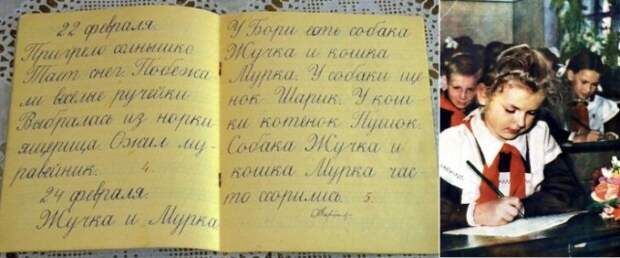 22 февраля.
Пригрело солнышко
Тает снег. Побежа
ли весёлые ручейки
Выбралась из норки
ящерица. Ожил му-
равейник. 4.
24 февраля.
Жучка и Мурка
У Бори есть собака
Жучка и кошка
Мурка. У собаки ще
нок Шарик. У кош-
ки котёнок Пушок.
Собака Жучка и
кошка Мурка час-
то ссорились. 5.